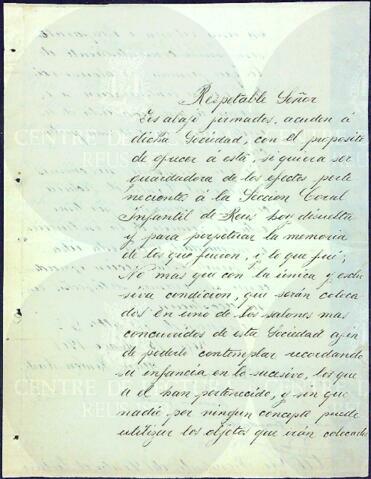 Respetable Señor
Los abajo firmados, acuden á
dicha Sociedad, con el proposito
de ofrecer á esta, si quiera ser
guardadora de los efectos perte
necientes á la Sección Coral
Infantil de Reus hoy disuelta
y para perpetuar la memoria
de los que fueron, y lo que fué;
No mas que con la única y esclu
siva condicion, que serán coloca
dos en uno de los salones mas
concurridos de esta Sociedad afin
de poderlo contemplar recordando
su infancia en lo sucesivo, los que
a el han pertenecido, y sin que
nadie por ningun concepto puede
utilizar los objetos que irán colocados
CENTRE DE LECTURA
REUS